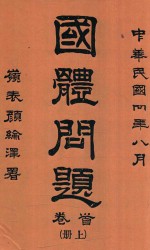 中華民國四年八月
國體問題
首卷
(上册)
嶺表顏綸澤署